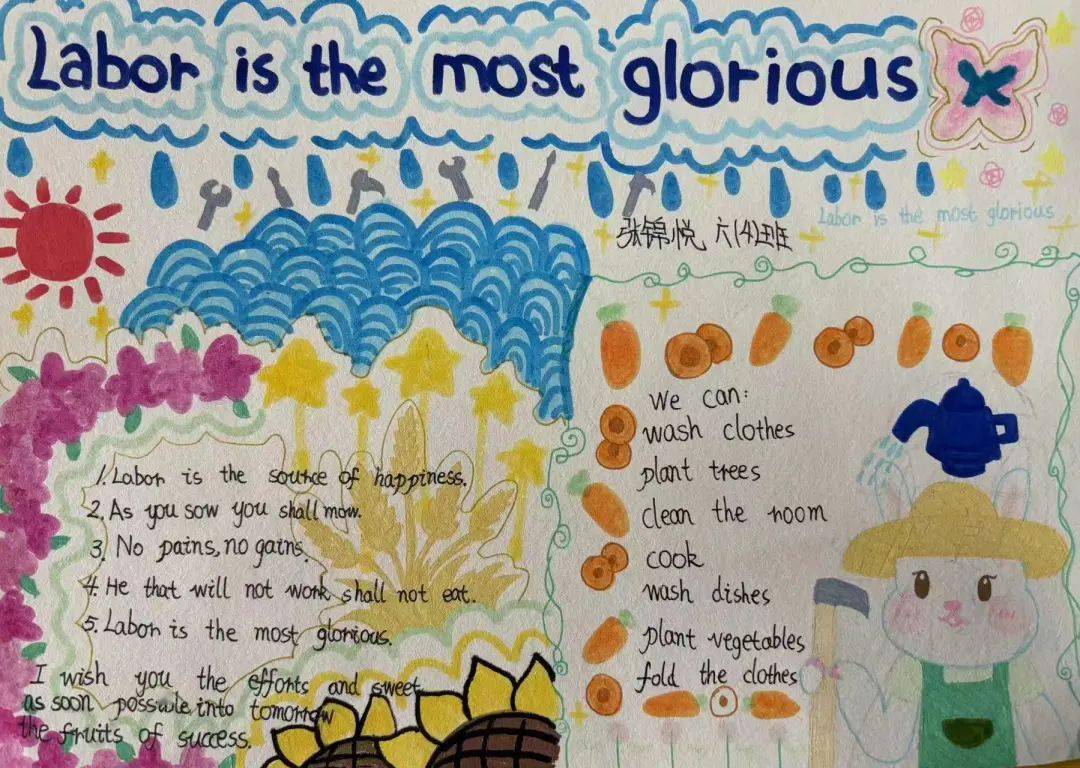 Labor is the most glorious
张锦悦 六(4)班
Labor is the most glorious
1. Labor is the source of happiness.
2. As you sow you shall mow.
3. No pains, no gains.
4. He that will not work shall not eat.
5. Labor is the most glorious.
I wish you the efforts and sweet
as soon posswle into tomorrow
the fruits of success.
We can:
wash clothes
plant trees
clean the room
cook
wash dishes
plant vegetables
fold the clothes